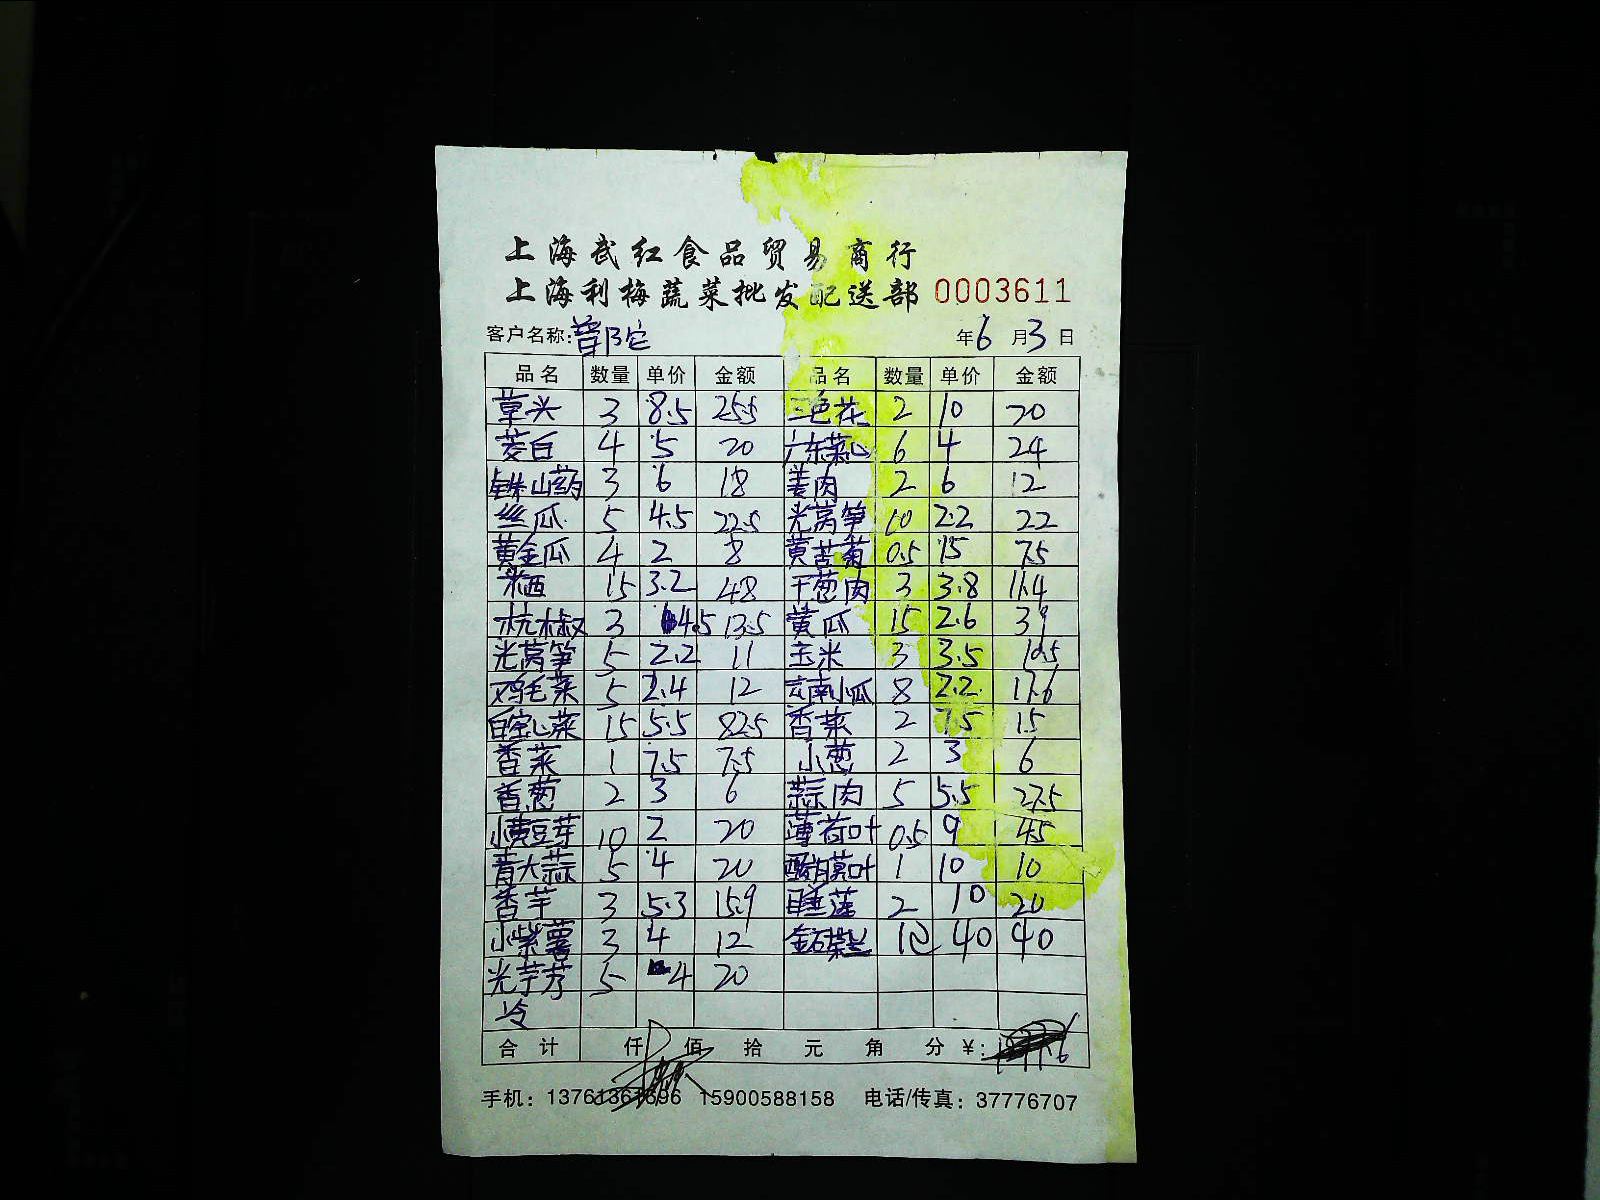 上海武红食品贸易商行
上海利梅蔬菜批发配送部 0003611
客户名称:普陀 年6月3日
品名 数量 单价 金额 品名 数量 单价 金额
草头 3 8.5 25.5 三色花 2 10 20
茭白 4 5 20 广东菜心 6 4 24
铁山药 3 6 18 姜肉 2 6 12
丝瓜 5 4.5 22.5 光莴笋 10 2.2 22
黄金瓜 4 2 8 黄苦菊 0.5 15 7.5
米西 15 3.2 48 干葱肉 3 3.8 11.4
杭椒 3 4.5 13.5 黄瓜 15 2.6 39
光莴笋 5 2.2 11 玉米 3 3.5 10.5
鸡毛菜 5 2.4 12 南小瓜 8 2.2 17.6
白空心菜 15 5.5 82.5 香菜 2 7.5 15
香菜 1 7.5 7.5 小葱 2 3 6
香葱 2 3 6 蒜肉 5 5.5 27.5
小黄豆芽 10 2 20 薄荷叶 0.5 9 4.5
青大蒜 5 4 20 叶 1 10 10
香芋 3 5.3 15.9 睡莲 2 10 20
小紫薯 3 4 12 40 40
光芋艿 5 4 20
冷
合计 仟 佰 拾 元 角 分 ¥:
手机: 13761361696 15900588158 电话/传真: 37776707